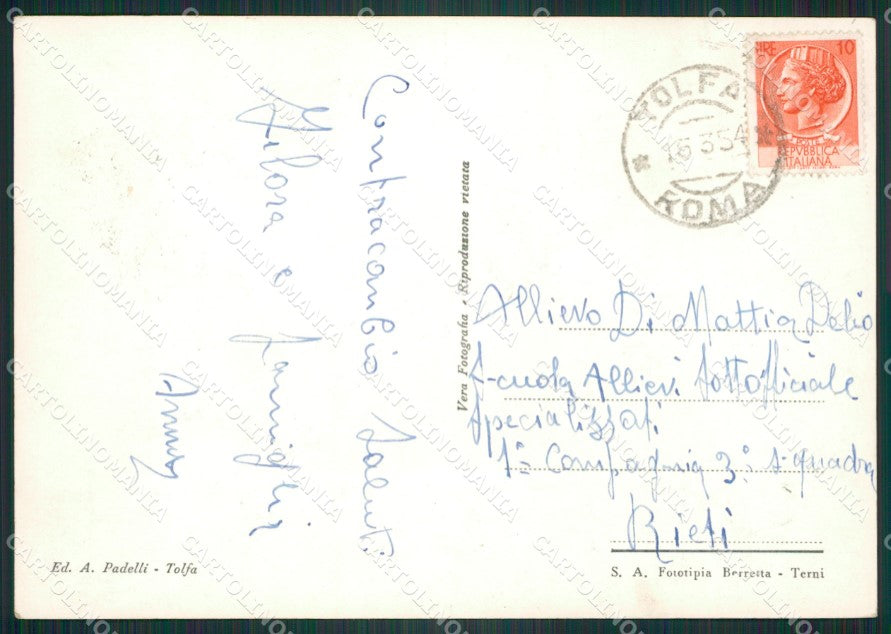 Contraccambio saluti
Filora e famiglia
Vera Fotografia - Riproduzione vietata
Ed. A. Padelli - Tolfa
TOLFA
6 3 54
ROMA
LIRE 10
POSTE
REPVBBLICA
ITALIANA
Allievo Di Mattia Delio
Scuola Allievi Sottofficiale
Specializzati
1ª Compagnia 3ª squadra
Rieti
S. A. Fototipia Berretta - Terni
CARTOLINOMANIA